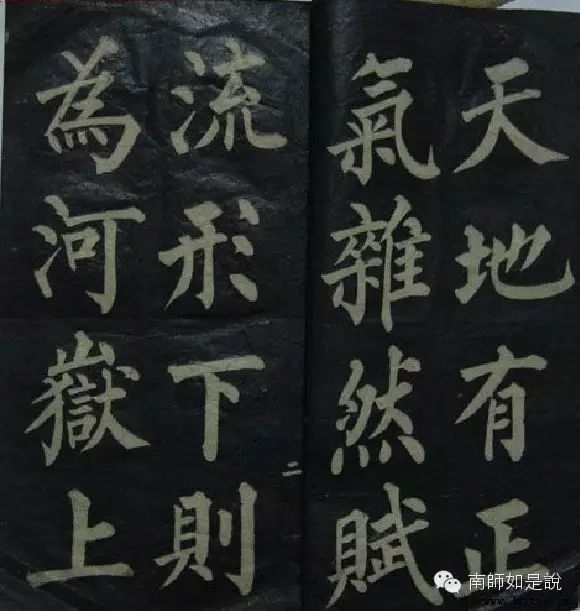 天地有正
氣雜然賦
流形下則
為河嶽上
二
南師如是說